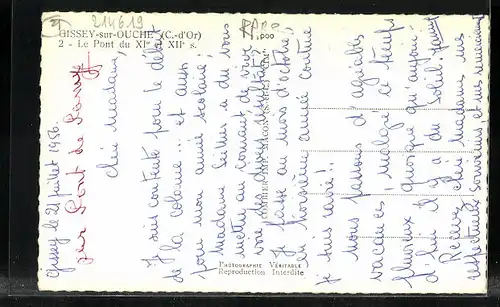 214619
GISSEY-sur-OUCHE (C.-d'Or)
2 - Le Pont du XIe et XIIe s.
Gissey le 21 juillet 1956
par Pont de Pany
Chère Madame,
Je suis contente pour le début
de la colonie ... et aussi
pour mon année scolaire;
Madame a dû vous
mettre au courant de
Je passe au mois d'octobre,
en troisième année
je suis ravie!!
nous passons d'agréables
vacances malgré ce temps
pluvieux quoique qu'aujourd'hui
il y a du Soleil.
Recevez chère Madame mes
respectueux souvenirs et mes
PHOTOGRAPHIE VÉRITABLE
Reproduction Interdite